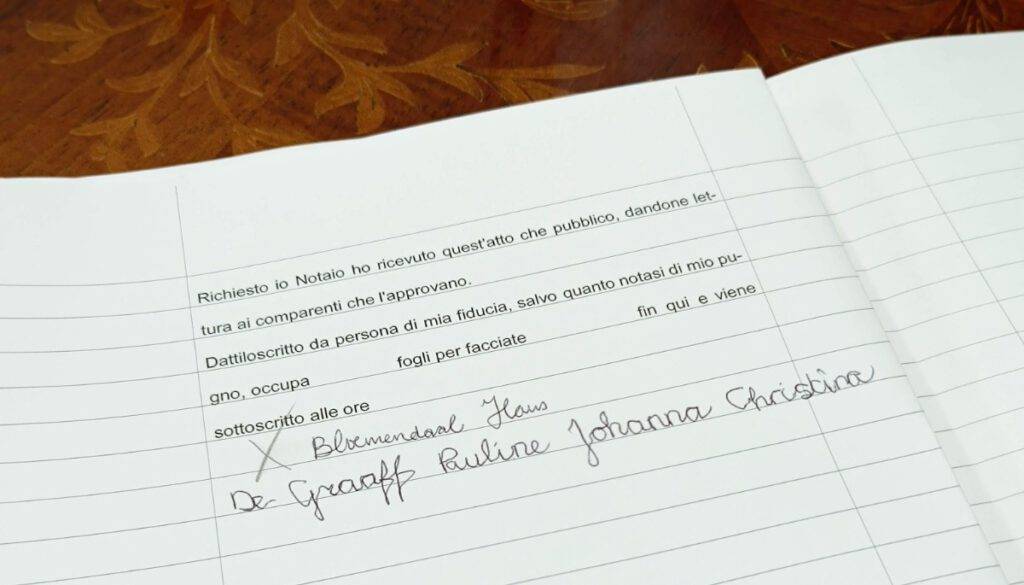 Richiesto io Notaio ho ricevuto quest'atto che pubblico, dandone let-
tura ai comparenti che l'approvano.
Dattiloscritto da persona di mia fiducia, salvo quanto notasi di mio pu-
gno, occupa fogli per facciate fin qui e viene
sottoscritto alle ore
X Bloemendaal Hans
De Graaff Pauline Johanna Christina